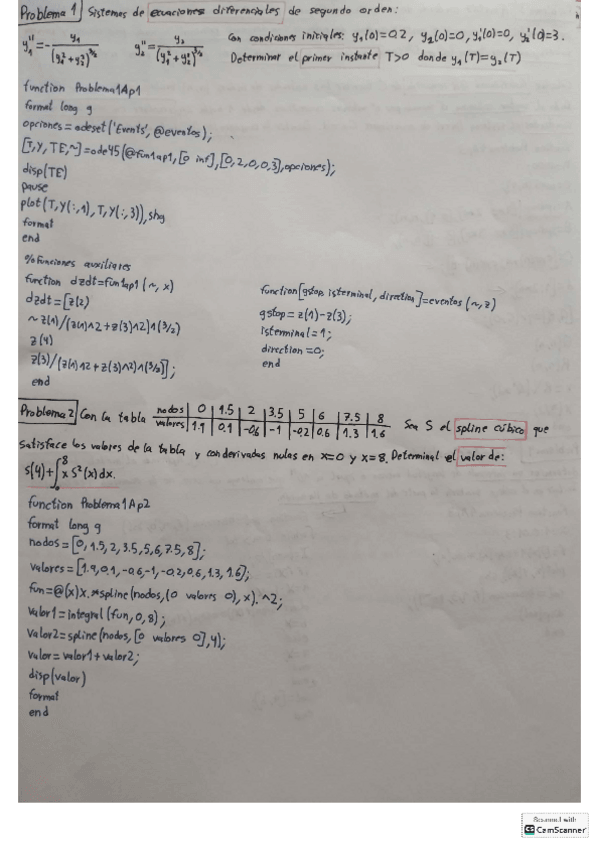 Problema 1 Sistemas de ecuaciones diferenciales de segundo orden:
y₁''=-y₁/(y₁²+y₂²)^(3/2) y₂''=y₂/(y₁²+y₂²)^(3/2) Con condiciones iniciales: y₁(0)=0.2, y₂(0)=0, y₁'(0)=0, y₂'(0)=3.
Determinar el primer instante T>0 donde y₁(T)=y₂(T)
function Problema1Ap1
format long g
opciones=odeset('Events',@eventos);
[T,Y,TE,~]=ode45(@fun1ap1,[0 inf],[0,2,0,0,3],opciones);
disp(TE)
pause
plot(T,Y(:,1),T,Y(:,3)),shg
format
end
%Funciones auxiliares
function dzdt=fun1ap1(~,x)
dzdt=[z(2)
~z(1)/(z(1)^2+z(3)^2)^(3/2)
z(4)
z(3)/(z(1)^2+z(3)^2)^(3/2)];
end
function[gstop,isterminal,direction]=eventos(~,z)
gstop=z(1)-z(3);
isterminal=1;
direction=0;
end
Problema 2 Con la tabla nodos 0 1.5 2 3.5 5 6 7.5 8
valores 1.9 0.1 -0.6 -1 -0.2 0.6 1.3 1.6 Sea S el spline cúbico que
satisface los valores de la tabla y con derivadas nulas en x=0 y x=8. Determinal el valor de:
S(4)+∫₀⁸ x S²(x)dx.
function Problema1Ap2
format long g
nodos=[0,1.5,2,3.5,5,6,7.5,8];
valores=[1.9,0.1,-0.6,-1,-0.2,0.6,1.3,1.6];
fun=@(x)x.*spline(nodos,(0 valores 0),x).^2;
valor1=integral(fun,0,8);
valor2=spline(nodos,[0 valores 0],4);
valor=valor1+valor2;
disp(valor)
format
end
Scanned with
CS CamScanner